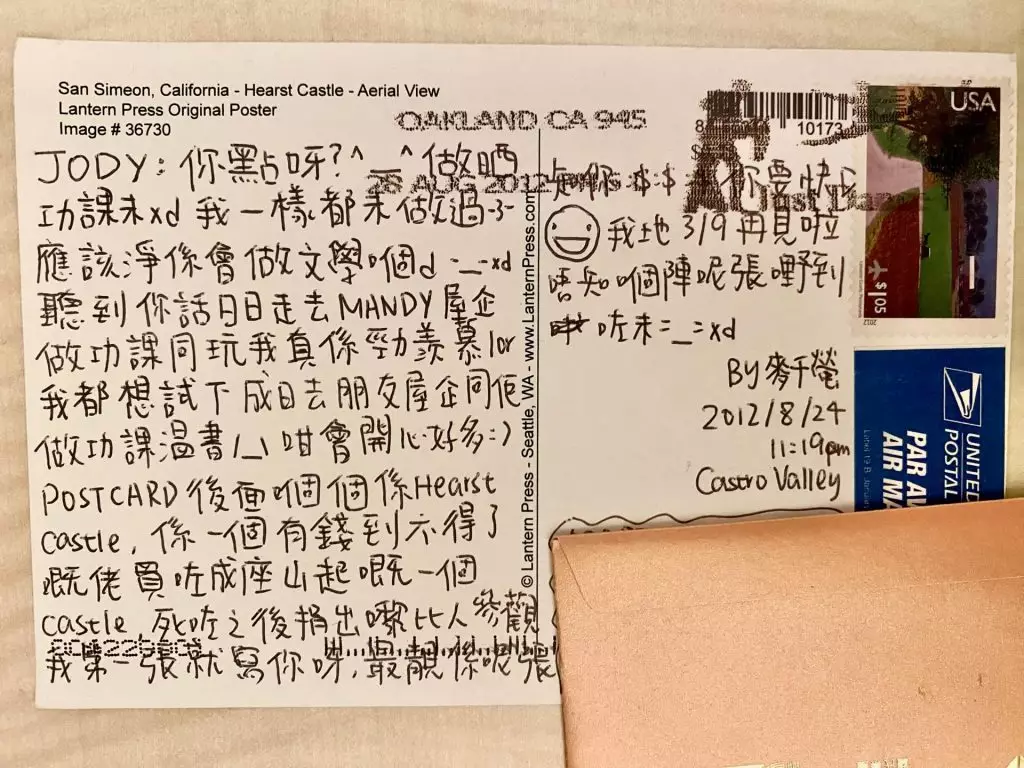 San Simeon, California - Hearst Castle - Aerial View
Lantern Press Original Poster
Image # 36730
OAKLAND CA 945
28 AUG 2012
JODY: 你點呀?^__^做晒
功課未xd 我一樣都未做過-3-
應該淨係會做文學嗰d =_=xd
聽到你話日日走去MANDY屋企
做功課同玩我真係勁羨慕lor
我都想試下成日去朋友屋企同佢
做功課温書/_\咁會開心好多:)
POSTCARD後面嗰個係Hearst
castle, 係一個有錢到不得了
嘅佬買咗成座山起嘅一個
castle, 死咗之後捐出嚟比人參觀
我第一張就寫你呀,最靚係呢張
© Lantern Press - Seattle, WA - www.LanternPress.com
你要快D
我地 3/9 再見啦
唔知嗰陣呢張嘢到
咗未=_=xd
BY 麥千螢
2012/8/24
11:19pm
Castro Valley
10173
USA
$1.05
2012
UNITED
POSTAL
PAR AV
AIR MA